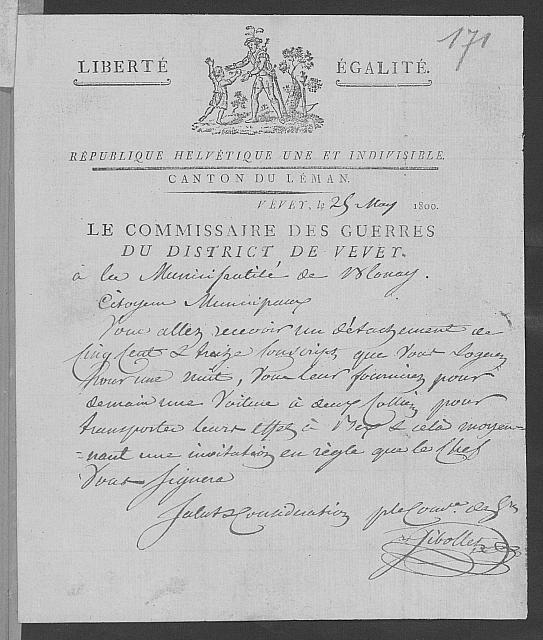 171
LIBERTÉ ÉGALITÉ.
RÉPUBLIQUE HELVÉTIQUE UNE ET INDIVISIBLE.
CANTON DU LÉMAN.
VEVEY, le 25 May 1800.
LE COMMISSAIRE DES GUERRES
DU DISTRICT DE VEVEY.
à la Municipalité de Blonay.
Citoyens Municipaux
Vous allez recevoir un détachement de
Cinq Cent & treize Conscripts que Vous Logerez
Pour une nuit, Vous leur fournirez pour
demain une Voiture à deux Colliers pour
transporter leurs effets à Bex & cela moyen-
=nant une invitation en règle que le Chef
Vous Signera
Salut & Consideration